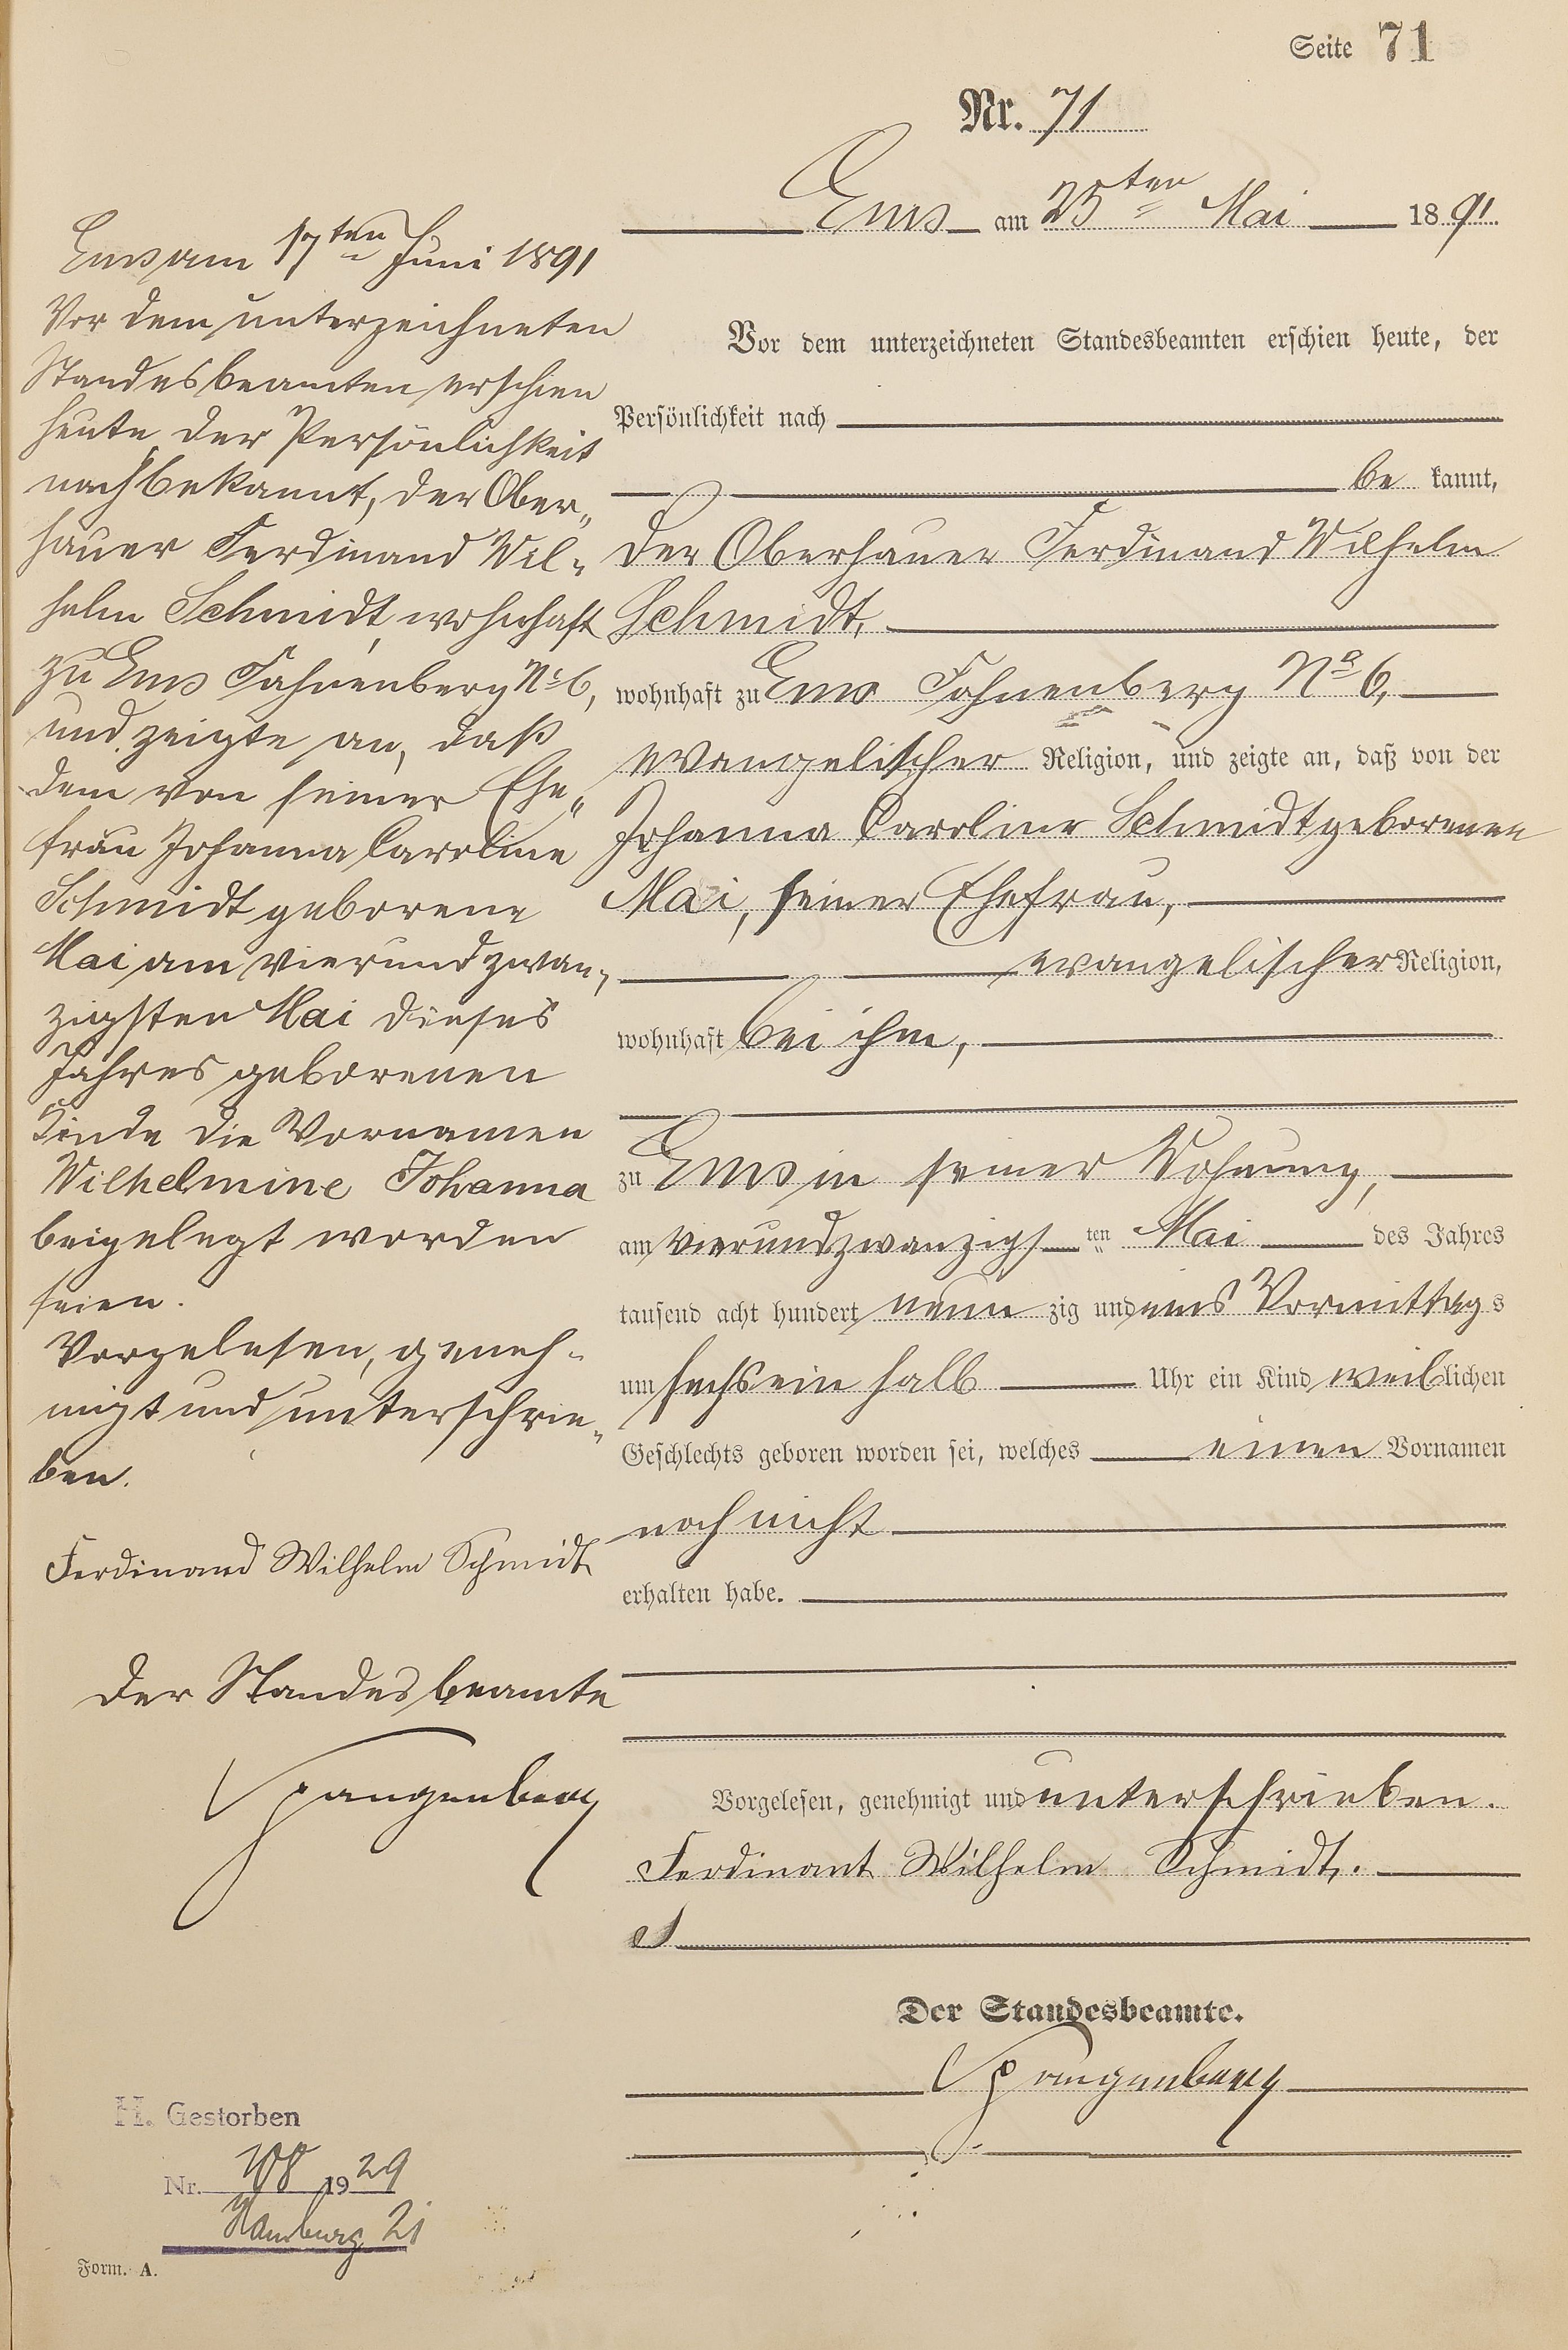 Seite 71
Nr. 71
Ems am 25ten Mai 1891.
Vor dem unterzeichneten Standesbeamten erschien heute, der
Persönlichkeit nach
bekannt,
der Oberhauer Ferdinand Wilhelm
Schmidt,
wohnhaft zu Ems Fahnenberg No 6,
evangelischer Religion, und zeigte an, daß von der
Johanna Caroline Schmidt geborenen
Mai, seiner Ehefrau,
evangelischer Religion,
wohnhaft bei ihm,
zu Ems in seiner Wohnung,
am vierundzwanzigsten Mai des Jahres
tausend acht hundert neunzig und eins Vormittags
um sechs ein halb Uhr ein Kind weiblichen
Geschlechts geboren worden sei, welches einen Vornamen
noch nicht
erhalten habe.
Vorgelesen, genehmigt und unterschrieben.
Ferdinant Wilhelm Schmidt.
Der Standesbeamte.
Spangenberg
Ems am 17ten Juni 1891
Vor dem unterzeichneten
Standesbeamten erschien
heute, der Persönlichkeit
nach bekannt, der Ober-
hauer Ferdinand Wil-
helm Schmidt, wohnhaft
zu Ems Fahnenberg No 6,
und zeigte an, daß
dem von seiner Ehe-
frau Johanna Caroline
Schmidt geborene
Mai am vierundzwan-
zigsten Mai dieses
Jahres geborenen
Kinde die Vornamen
Wilhelmine Johanna
beigelegt worden
seien.
Vorgelesen, geneh-
migt und unterschrie-
ben.
Ferdinand Wilhelm Schmidt
Der Standesbeamte
Spangenberg
H. Gestorben
Nr. 108 1929
Hamburg 21
Form. A.